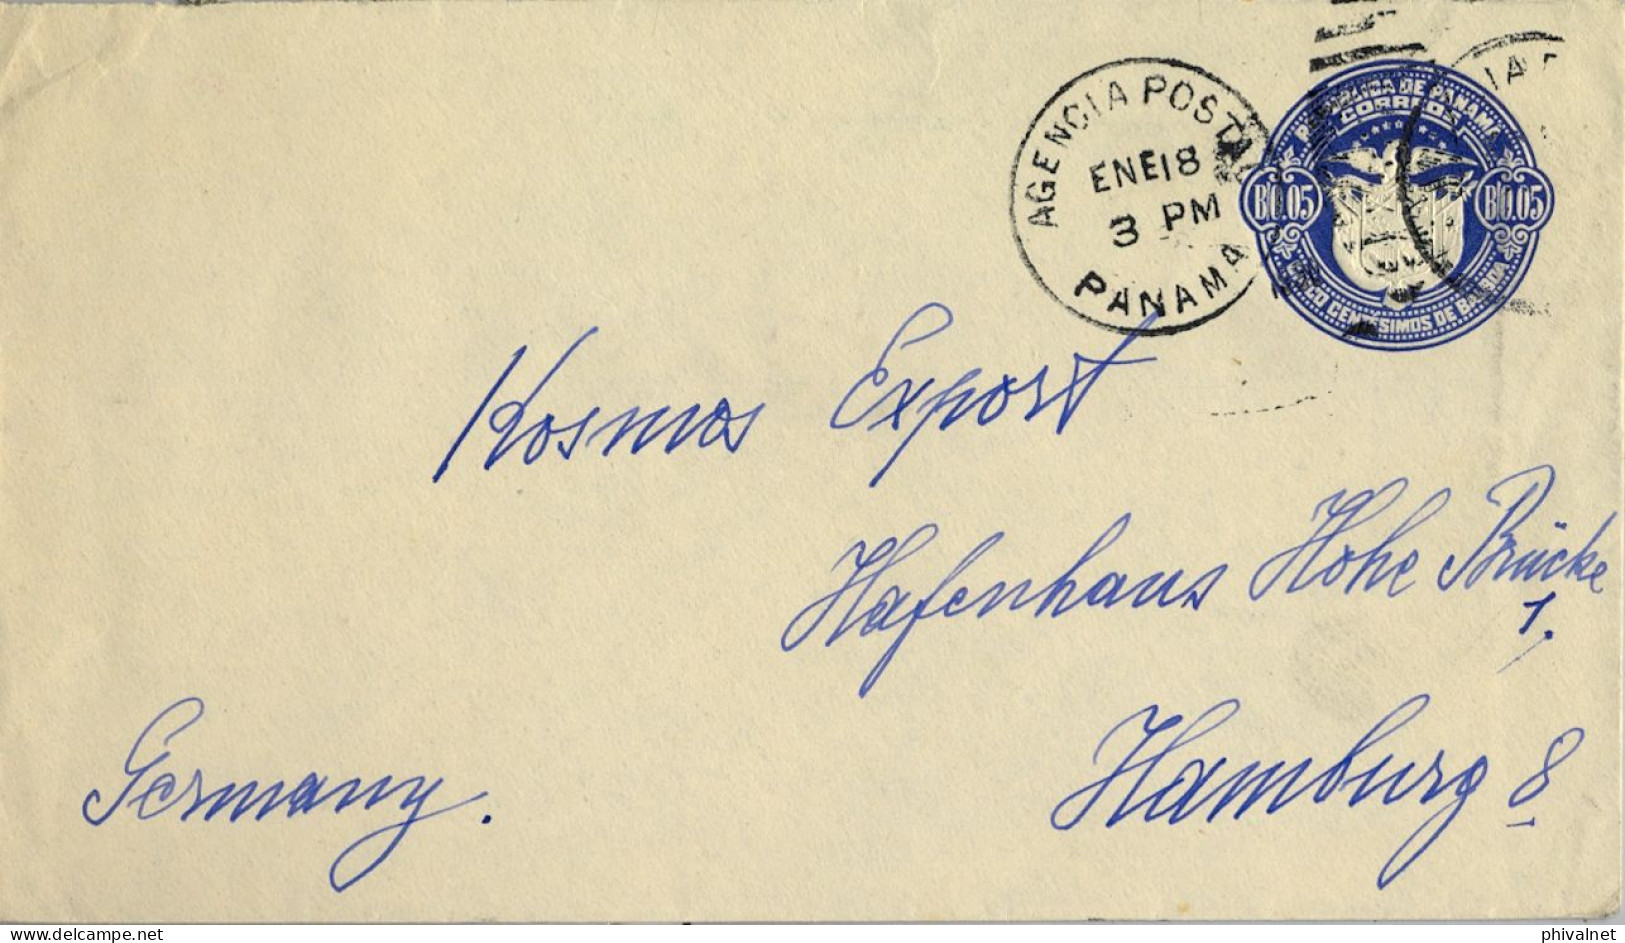 AGENCIA POSTAL
ENE 18
3 PM
PANAMA
REPUBLICA DE PANAMA
CORREOS
B/0.05 B/0.05
CINCO CENTESIMOS DE BALBOA
Kosmos Export
Hafenhaus Hohe Brücke
1.
Hamburg 8
Germany.
www.delcampe.net
phivalnet